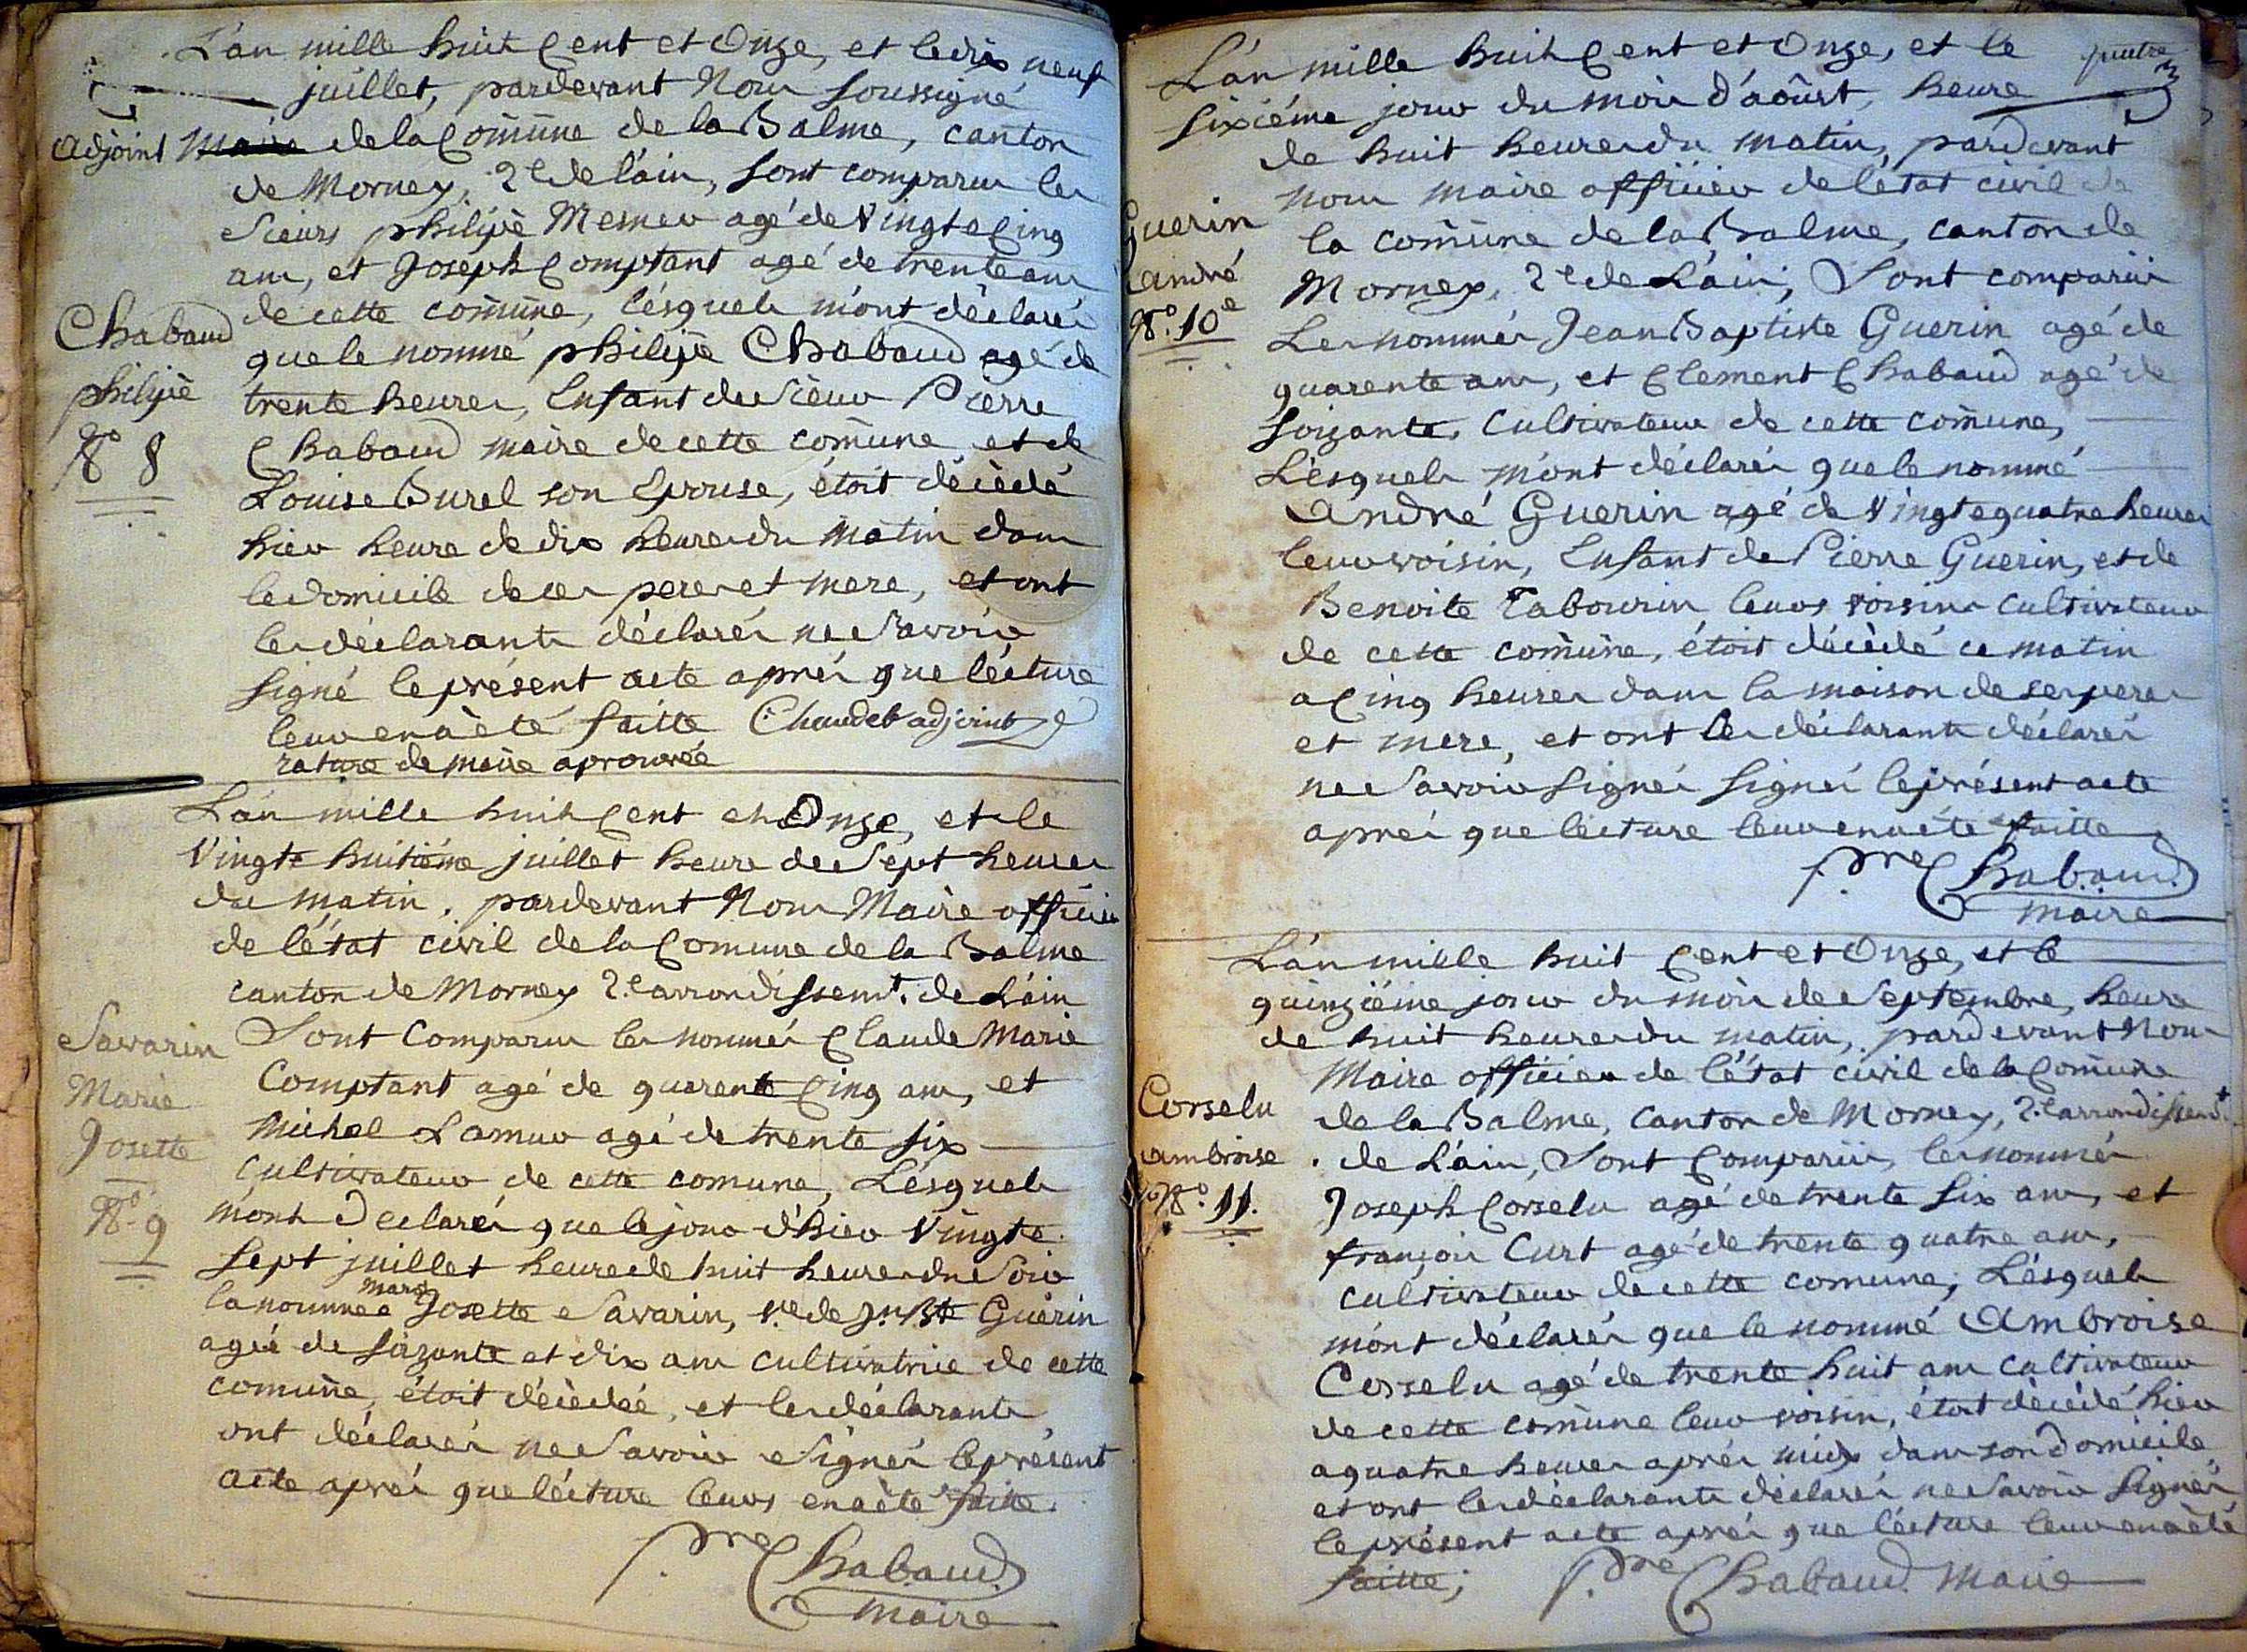 L'an mille huit Cent et Onze, et le dix neuf
juillet, pardevant Nous soussigné
adjoint Maire de la Comune de la Balme, canton
de Mornex, 2e de l'ain, sont comparus les
Sieurs philipe Mesmer agé de Vingte Cinq
ans, et Joseph Comptant agé de trente ans
de cette comune, lésquels m'ont déclarés
Chabaud
philipe
N° 8
que le nommé philipe Chabaud agé de
trente heures, Enfant du Sieur Pierre
Chabaud maire de cette comune et de
Louise Burel son Epouse, étoit décédé
hier heure de dix heures du matin dans
le domicile de ses peres et mere, et ont
les déclarants déclarés ne Savoir
signé le présent acte aprés que lécture
leur en a èté faitte Chaudet adjoint
rature de maire aprouvée
L'an mille huit Cent et Onze, et le
Vingte huitiéme juillet heure de Sept heures
du matin, pardevant Nous Maire officier
de l'état civil de la Comune de la Balme
canton de Mornex 2.e arrondissemt. de L'ain
Savarin
Marie
Josette
N° 9
Sont Comparus les nommés Claude Marie
Comptant agé de quarente Cinq ans, et
Michel Lamur agé de trente six
Cultivateurs de cette comune, Lésquels
m'ont Declarés que le jour d'hier Vingte
Sept juillet heure de huit heures du Soir
la nommée Marie Josette Savarin, v.e de Jn. Bte Guérin
agée de soizante et dix ans cultivatrice de cette
comune, étoit décédée, et les déclarants
ont déclarés ne Savoir Signés le présent
acte aprés que lécture leurs en a èté faitte.
Pre Chabaud
Maire
quatre
L'an mille huit Cent et Onze, et le
sixiéme jour du mois d'aoûst, heure
de huit heures du matin, pardevant
nous maire officier de l'état civil de
la comune de la Balme, canton de
Mornex, 2e de L'ain, Sont comparüs
Guerin
andré
N°. 10e
Les nommés Jean Baptiste Guerin agé de
quarente ans, et Clement Chabaud agé de
soizante, Cultivateurs de cette comune,
Lésquels m'ont déclarés que le nommé
André Guerin agé de Vingte quatre heures
leur voisin, Enfant de Pierre Guerin, et de
Benoite Tabourin leurs voisins cultivateurs
de cette comune, étoit décèdé ce matin
a Cinq heures dans la maison de ses peres
et mere, et ont les déclarants déclarés
ne Savoir Signés Signés le présent acte
aprés que lécture leur en a éte faitte
Pre Chabaud
maire
L'an mille huit Cent et Onze, et le
quinziéme jour du mois de Septembre, heure
de huit heures du matin, pardevant Nous
Maire officier de l'état civil de la Comune
de la Balme, Canton de Mornex, 2.e arrondissemt
de L'ain, Sont Comparüs, les nommés
Corselu
ambroise
N°. 11.
Joseph Corselu agé de trente six ans, et
françois Curt agé de trente quatre ans,
cultivateurs de cette comune, Lésquels
m'ont déclarés que le nommé Ambroise
Corselu agé de trente huit ans cultivateur
de cette comune leur voisin, étoit décédé hier
a quatre heures aprés midy dans son domicile
et ont les déclarants déclarés ne Savoir Signés
le présent acte aprés que lécture leur en a èté
faitte; Pre Chabaud Maire